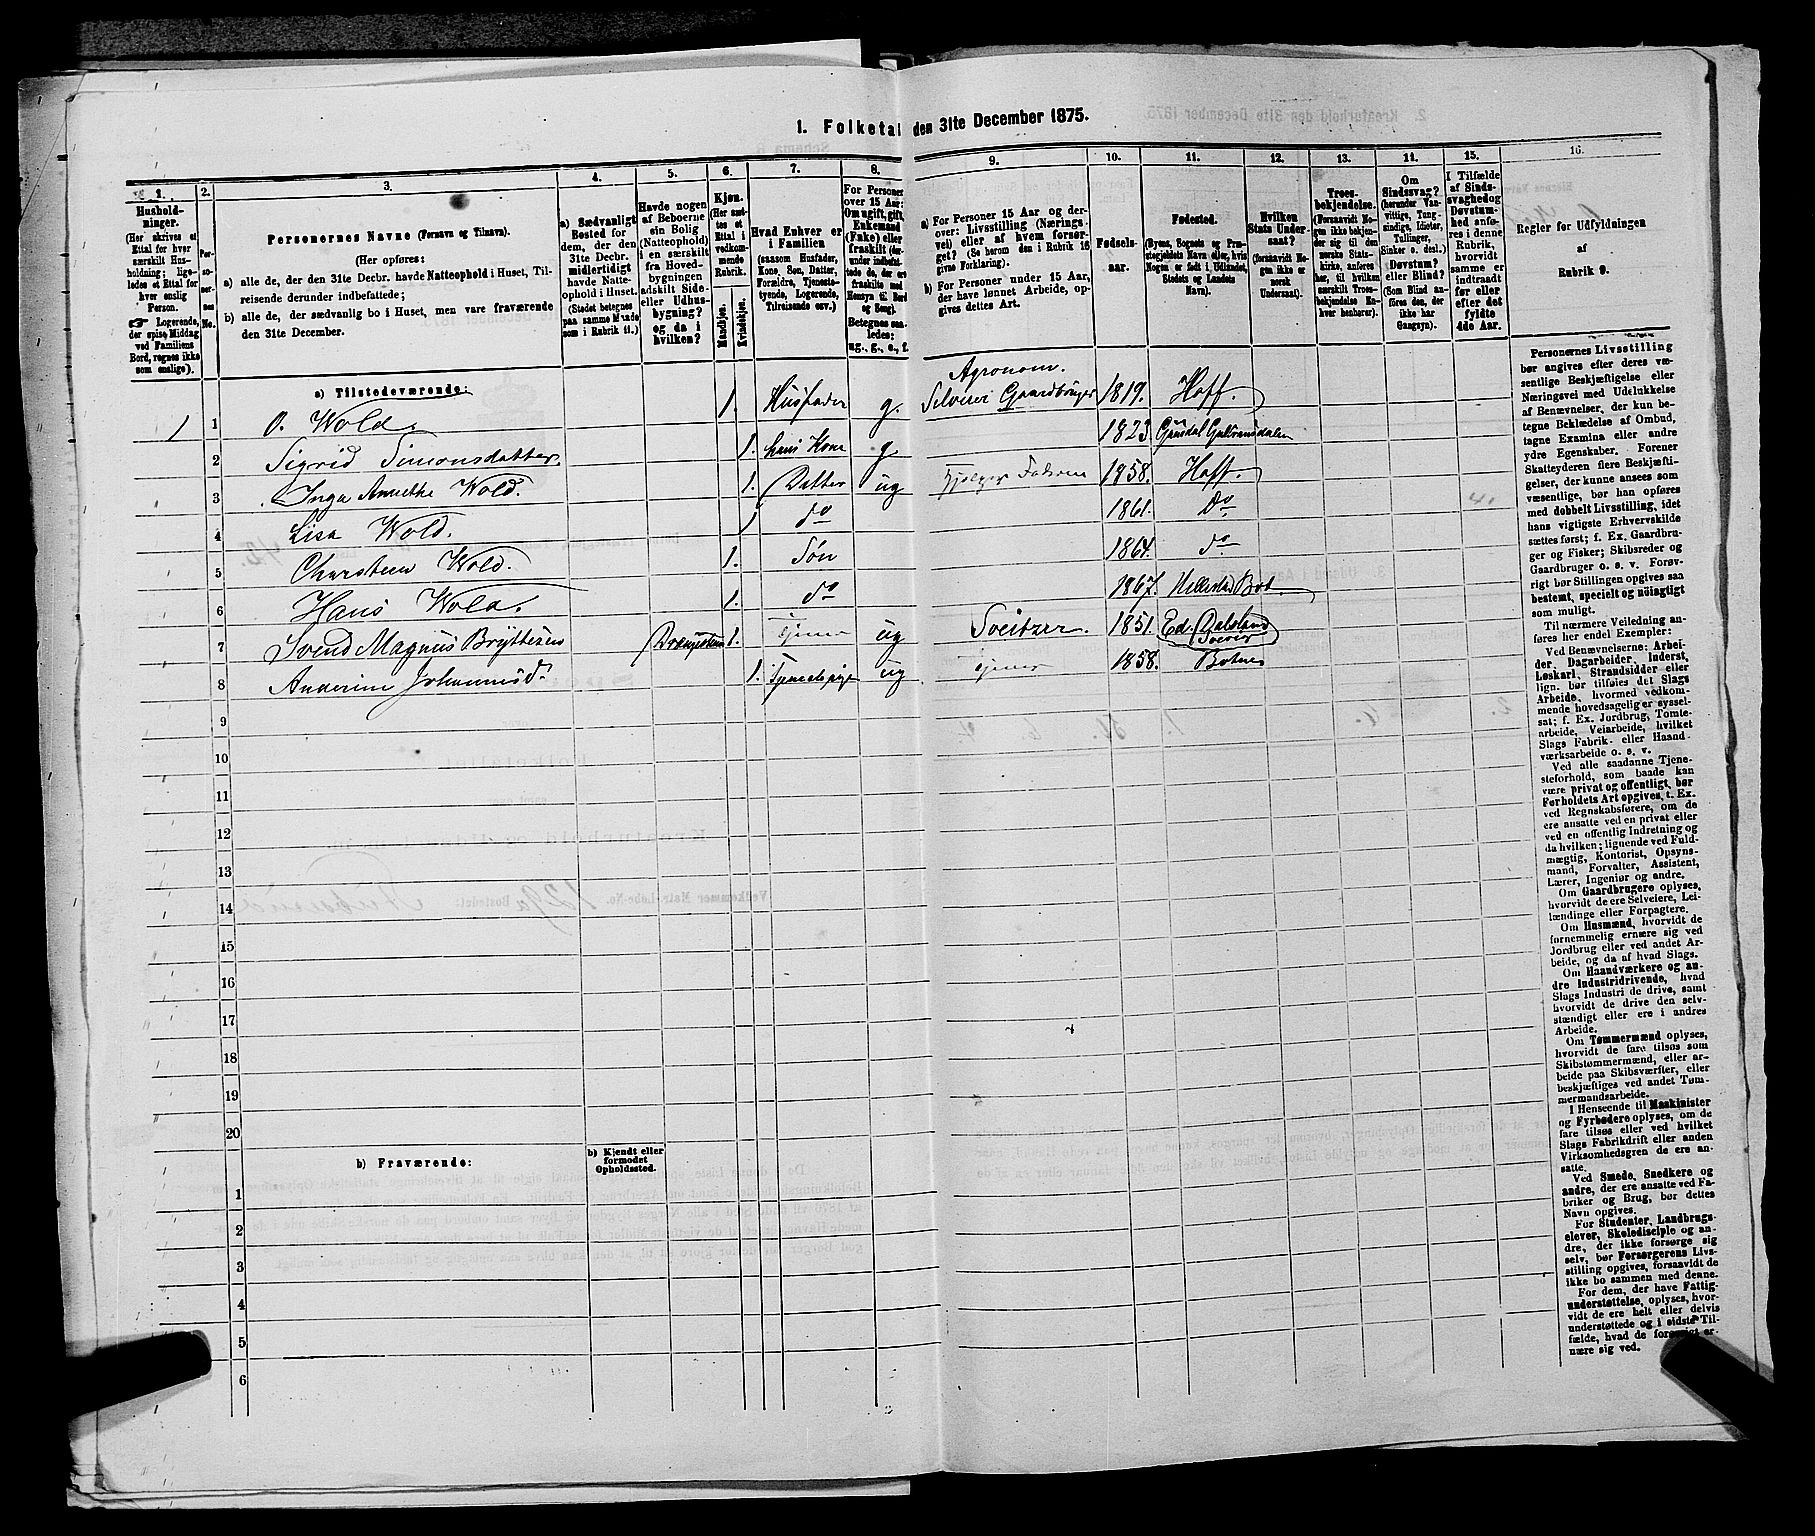 1. Folketal den 31te December 1875.
1. 2. 3. 4. 5. 6. 7. 8. 9. 10. 11. 12. 13. 14. 15. 16.
Hushold-
ninger.
(Her skrives et
Ettal for hver
særskilt Hus-
holdning; lige-
ledes et Ettal for
hver enslig
Person.
☞ Logerende,
der spise Middag
ved Familiens
Bord, regnes ikke
som enslige).
Per-
so-
ner-
nes
No.
Personernes Navne (Fornavn og Tilnavn).
(Her opføres:
a) alle de, der den 31te Decbr. havde Natteophold i Huset, Til-
reisende derunder indbefattede;
b) alle de, der sædvanlig bo i Huset, men vare fraværende
den 31te December.
a) Sædvanligt
Bosted for
dem, der den
31te Decbr.
midlertidigt
havde Natte-
ophold i Huset.
(Stedet betegnes
paa samme Maade
som i Rubrik 11.)
Havde nogen
af Beboerne
sin Bolig
(Natteophold)
i en særskilt
fra Hoved-
bygningen
adskilt Side-
eller Udhus-
bygning?
og da i
hvilken?
Kjøn.
(Her sæt-
tes et
Ettal i
vedkom-
mende
Rubrik.
Mandkjøn.
Kvindekjøn.
Hvad Enhver er
i Familien
(saasom Husfader,
Kone, Søn, Datter,
Forældre, Tjeneste-
tyende, Logerende,
Tilreisende osv.)
For Personer
over 15 Aar:
Om ugift, gift,
Enkemand
(Enke) eller
fraskilt
Betegnes saa-
ledes:
ug., g., e., f.
a) For Personer 15 Aar og der-
over: Livsstilling (Nærings-
vei) eller af hvem forsør-
get? (Se herom den i Rubrik 16
givne Forklaring).
b) For Personer under 15 Aar,
der have lønnet Arbeide, op-
gives dettes Art.
Fødsels-
aar.
Fødested.
(Byens, Sognets og Præ-
stegjeldets Navn eller, hvis
Nogen er født i Udlandet,
Stedets og Landets
Navn).
Hvilken
Stats Under-
saat?
(forsaavidt No-
gen ikke er
norsk
Undersaat).
Troes-
bekjendelse.
(Forsaavidt No-
gen ikke bekjen-
der sig til den
norske Stats-
kirke, anføres
her, til hvilken
særskilt Troes-
bekjendelse En-
hver henhører).
Om
Sindssvag?
(herunder Van-
vittige, Tung-
sindige, Idioter,
Tullinger,
Sinker o. desl.)
Døvstum?
eller Blind?
(Som Blind an-
føres den, der
ikke har
Gangsyn).
I Tilfælde
af Sinds-
svaghed og
Døvstum-
hed anfø-
res i denne
Rubrik,
hvorvidt
samme er
indtraadt
før eller
efter det
fyldte
4de Aar.
Regler for Udfyldningen
af
Rubrik 9.
a) Tilstedeværende:
Agronom.
1 1 O. Wold. 1. Husfader g. Selveier Gaardbruger 1819. Hoff.
2 Sigrid Simonsdatter. 1. hans Kone g. 1823.
3 Inga Annethe Wold. 1. Datter ug Faderen 1858. Hoff.
4 Lisa Wold. 1 do 1861. Do.
5 Wold. 1. Søn 1864. do
6 Hans Wold. 1. do 1867. Bot.
7 Svend Magnus 1. ug Sveitzer. 1851. Ed. Dalsland
8 Anderine Johannesd. 1. Tjenestepige ug 1858. Botne
9
10
11
12
13
14
15
16
17
18
19
20
b) Fraværende:
b) Kjendt eller
formodet
Opholdssted.
1
2
3
4
5
6
Personernes Livsstilling
bør angives efter deres væ-
sentlige Beskjæftigelse eller
Næringsvei med Udelukkelse
af Benævnelser, der kun be-
tegne Beklædelse af Ombud,
tagne Examina eller andre
ydre Egenskaber. Forener
Skatteyderen flere Beskjæfti-
gelser, der kunne ansees som
væsentlige, bør han opføres
med dobbelt Livsstilling, idet
hans vigtigste Erhvervskilde
sættes først; f. Ex. Gaardbru-
ger og Fisker; Skibsreder og
Gaardbruger o. s. v. Forøv-
rigt bør Stillingen opgives saa
bestemt, specielt og nöiagtigt
som muligt.
Til nærmere Veiledning an-
føres her endel Exempler:
Ved Benævnelserne: Arbei-
der, Dagarbeider, Inderst,
Løskarl, Strandsidder eller
lign. bør tilføies det Slags
Arbeide, hvormed vedkom-
mende hovedsagelig er syssel-
sat; f. Ex. Jordbrug, Tomte-
arbeide, Veiarbeide, hvilket
Slags Fabrik- eller Haand-
værksarbeide o. s. v.
Ved alle saadanne Tjene-
steforhold, som baade kan
være privat og offentligt, bør
Forholdets Art opgives, t. Ex.
ved Regnskabsførere, om de
ere ansatte ved en privat eller
ved en offentlig Indretning og
da hvilken; lignende ved Fuld-
mægtig, Kontorist, Opsyns-
mand, Forvalter, Assistent,
Lærer, Ingeniør og andre.
Om Gaardbrugere oplyses,
hvorvidt de ere Selveiere, Lei-
lændinge eller Forpagtere.
Om Husmænd, hvorvidt de
fornemmelig ernære sig ved
Jordbrug eller ved andet Ar-
beide, og da af hvad Slags.
Om Haandværkere og an-
dre Industridrivende, hvad
Slags Industri de drive, samt
hvorvidt de drive den selv-
stændigt eller ere i andres
Arbeide.
Om Tømmermænd oplyses,
hvorvidt de fare tilsøs som
Skibstømmermænd, eller ar-
beide paa Skibsværfter, eller
beskjæftiges ved andet Tøm-
mermandsarbeide.
I Henseende til Maskinister
og Fyrbødere oplyses, om de
fare tilsøs eller ved hvilket
Slags Fabrikdrift eller anden
Virksomhedsgren de ere an-
satte.
Ved Smede, Snedkere og
andre, der ere ansatte ved Fa-
briker og Brug, bør dettes
Navn opgives.
For Studenter, Landbrugs-
elever, Skoledisciple og an-
dre, der ikke forsørge sig
selv, bør Forsørgerens Livs-
stilling opgives, forsaavidt de
ikke bo sammen med denne.
For dem, der have Fattig-
understøttelse, oplyses, hvor-
vidt de ere helt eller delvis
understøttede og i sidste Til-
fælde, hvad de forøvrigt er-
nære sig ved.